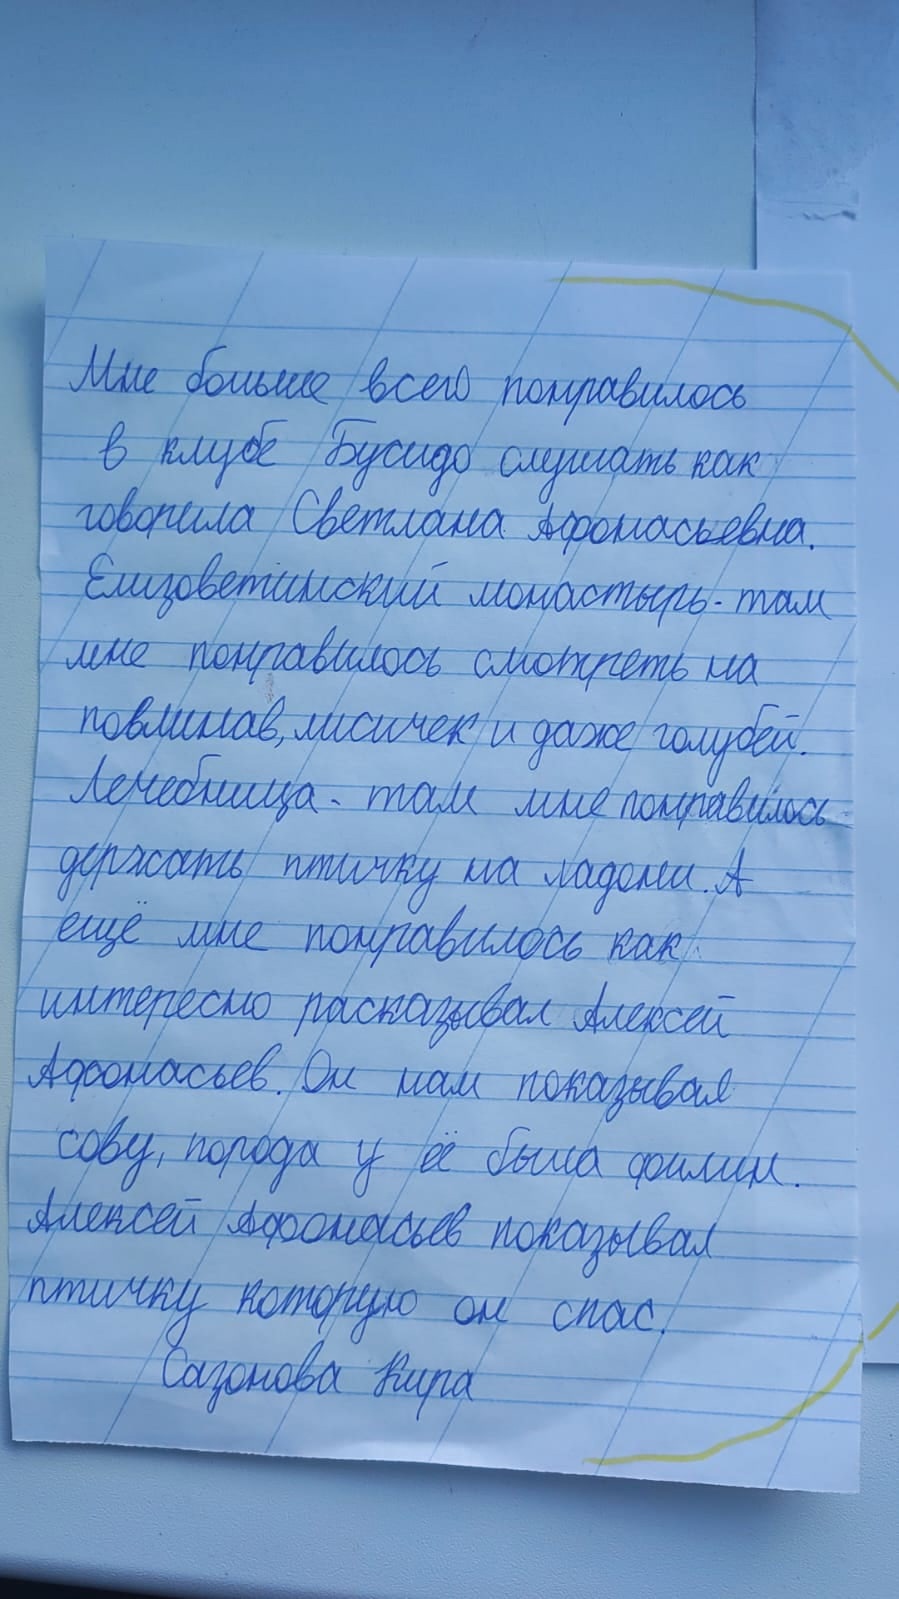 Мне больше всего понравилось
в клубе Бусидо слушать как
говорила Светлана Афонасьевна.
Елизоветинский монастырь - там
мне понравилось смотреть на
повлинав, лисичек и даже голубей.
Лечебница - там мне понравилось
держать птичку на ладони. А
ещё мне понравилось как
интересно расказывал Алексей
Афонасьев. Он нам показывал
сову, порода у её была филин.
Алексей Афонасьев показывал
птичку которую он спас.
Сазонова Кира